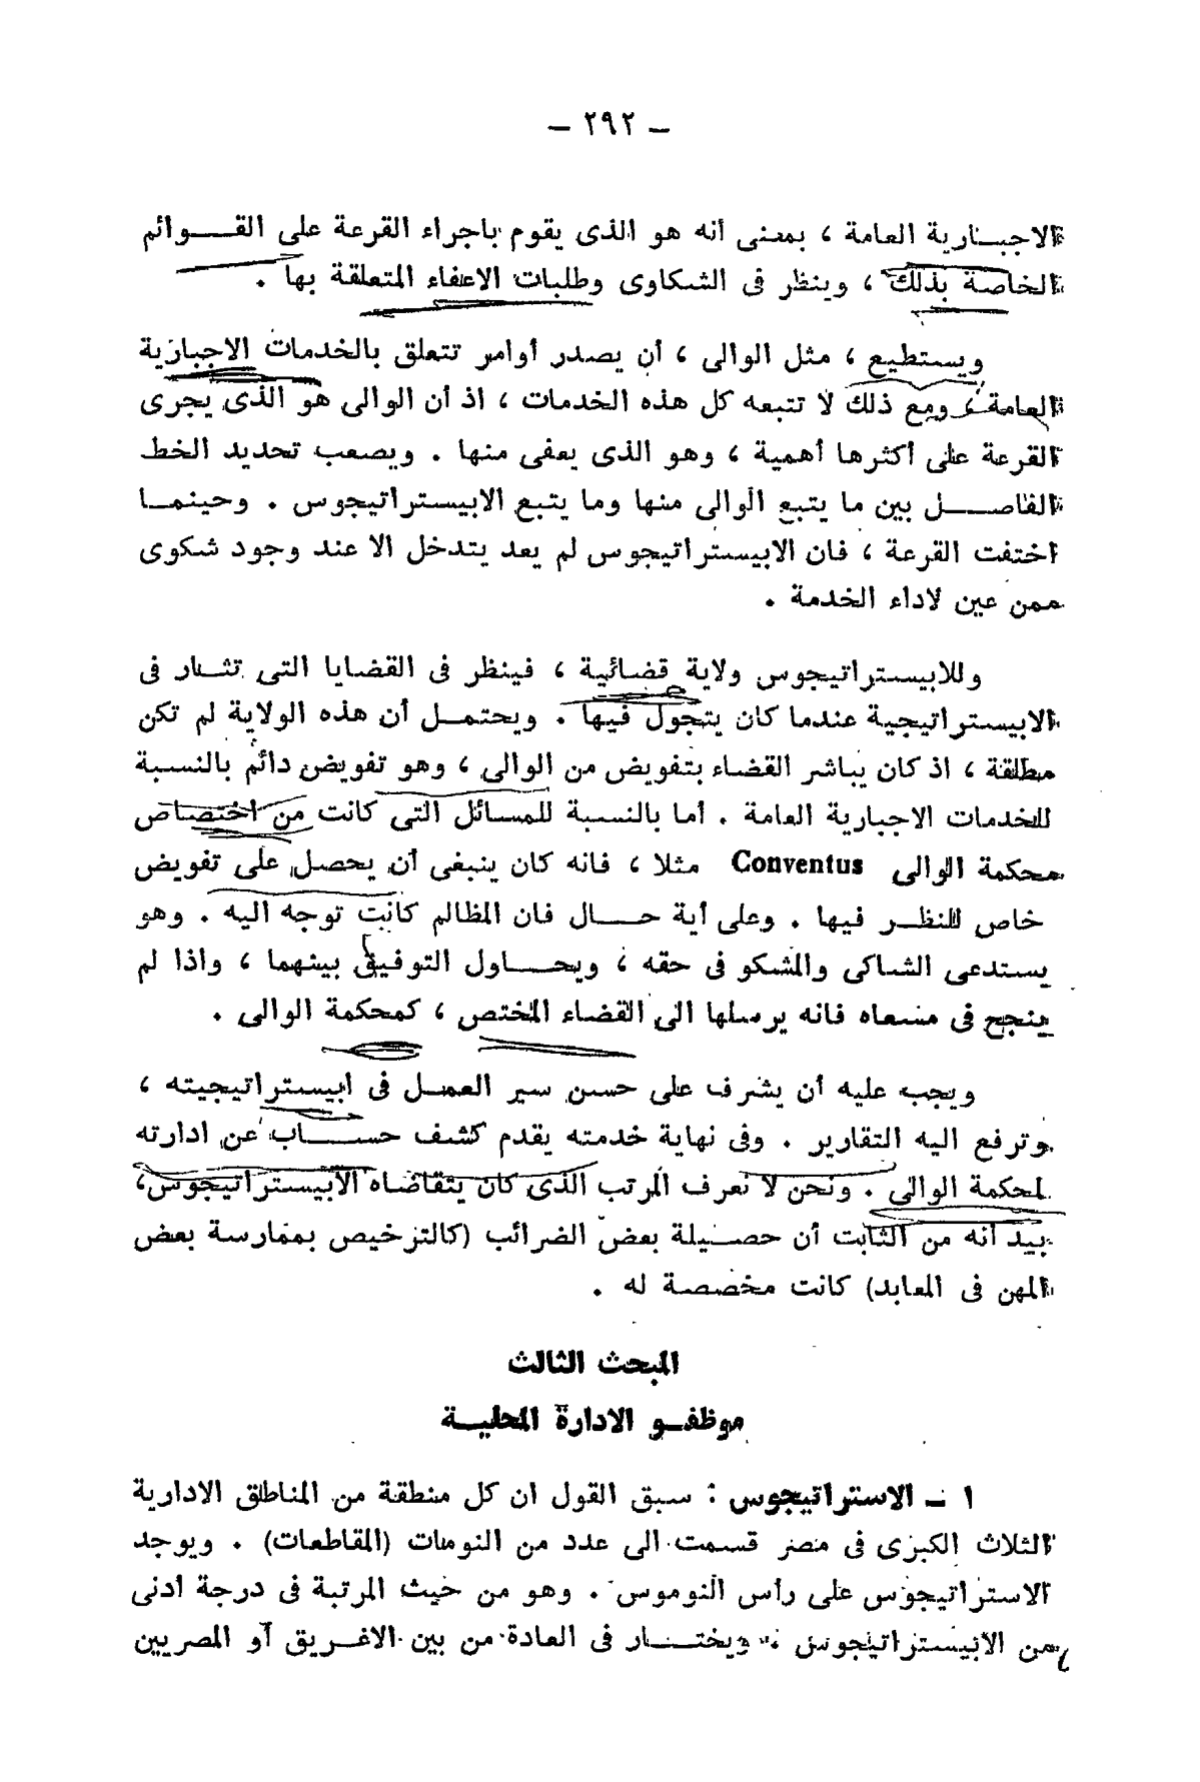 — ٢٩٢ —
الاجبـارية العامة ، بمعنى أنه هو الذى يقوم باجراء القرعة على القــوائم
الخاصة بذلك ، وينظر فى الشكاوى وطلبات الاعفاء المتعلقة بها .
ويستطيع ، مثل الوالى ، أن يصدر أوامر تتعلق بالخدمات الاجبارية
العامة ، ومع ذلك لا تتبعه كل هذه الخدمات ، اذ أن الوالى هو الذى يجرى
القرعة على أكثرها أهمية ، وهو الذى يعفى منها . ويصعب تحديد الخط
الفاصــل بين ما يتبع الوالى منها وما يتبع الابيستراتيجوس . وحينمـا
اختفت القرعة ، فان الابيستراتيجوس لم يعد يتدخل الا عند وجود شكوى
ممن عين لاداء الخدمة .
وللابيستراتيجوس ولاية قضائية ، فينظر فى القضايا التى تثـار فى
الابيستراتيجية عندما كان يتجول فيها . ويحتمـل أن هذه الولاية لم تكن
مطلقة ، اذ كان يباشر القضاء بتفويض من الوالى ، وهو تفويض دائم بالنسبة
للخدمات الاجبارية العامة . أما بالنسبة للمسائل التى كانت من اختصاص
محكمة الوالى Conventus مثلا ، فانه كان ينبغى أن يحصل على تفويض
خاص للنظـر فيها . وعلى أية حــال فان المظالم كانت توجه اليه . وهو
يستدعى الشاكى والمشكو فى حقه ، ويحــاول التوفيق بينهما ، واذا لم
ينجح فى مسعاه فانه يرسلها الى القضاء المختص ، كمحكمة الوالى .
ويجب عليه أن يشرف على حسن سير العمـل فى ابيستراتيجيته ،
وترفع اليه التقارير . وفى نهاية خدمته يقدم كشف حســاب عن ادارته
لمحكمة الوالى . ونحن لا نعرف المرتب الذى كان يتقاضاه الابيستراتيجوس،
بيد أنه من الثابت أن حصـيلة بعض الضرائب (كالترخيص بممارسة بعض
المهن فى المعابد) كانت مخصصة له .
المبحث الثالث
موظفـو الادارة المحليـة
١ ـ الاستراتيجوس : سبق القول ان كل منطقة من المناطق الادارية
الثلاث الكبرى فى مصر قسمت الى عدد من النومات (المقاطعات) . ويوجد
الاستراتيجوس على رأس النوموس . وهو من حيث المرتبة فى درجة أدنى
من الابيستراتيجوس ، ويختــار فى العادة من بين الاغـريق أو المصريين